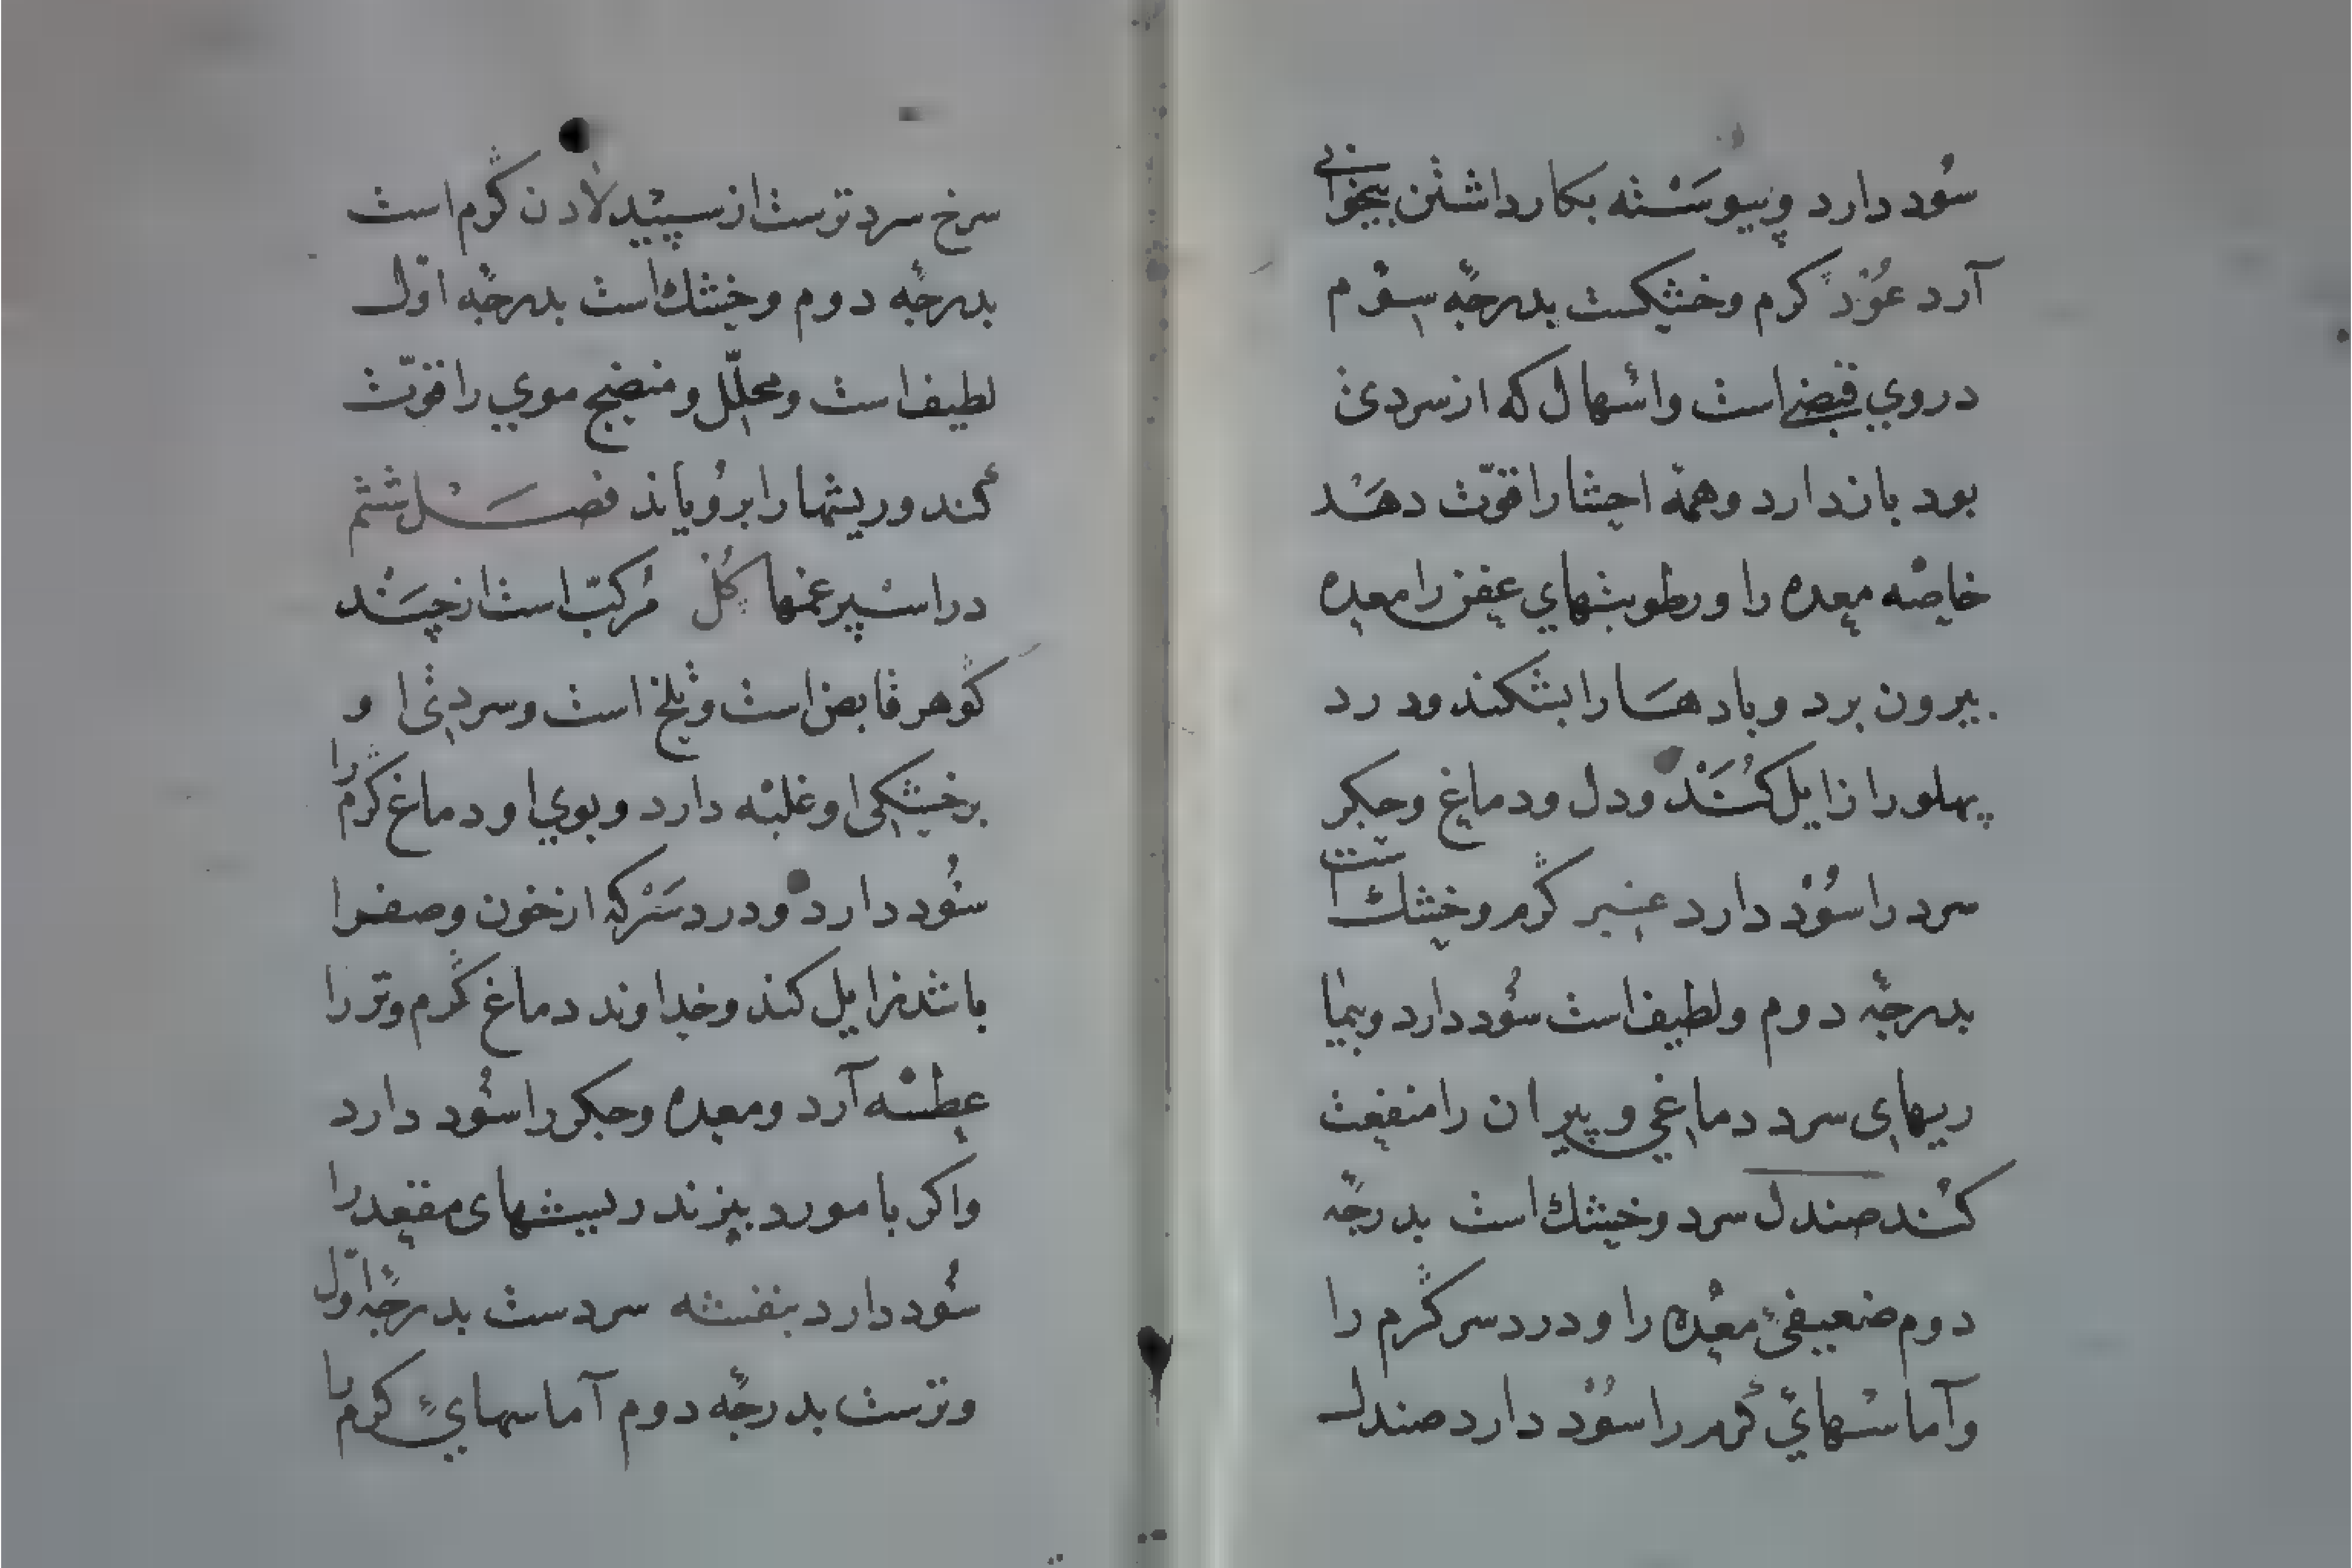 سُود دارد وپیوسَسْته بکار داشتن بیخوابی
آرد عُوْد گرم وخشکست بدرجَه سِوُم
دروي قبضي است واسْهال که از سردی
بود باز دارد وهمَه احشا را قوّت دهَد
خاصْه معده را ورطوبتهاي عفن را معده
بیرون برد وبادهَا را بشکند ودرد
پهلو را زایل کُنَد ودل ودماغ وجکر
سرد را سُوْد دارد عنبر گرم وخشك است
بدرجَه دوم ولطیف است سُود دارد وبیما
ریهای سرد دماغي وپیران را منفعت
کند صندل سرد وخشك است بدرجَه
دوم ضعیفیِ معده را ودرد سر گرم را
وآماسْهايِ گرم را سُوْد دارد صندل
سرخ سردترست از سپید لادن گرم است
بدرجَه دوم وخشك است بدرجَه اوّل
لطیف است ومحلّل ومنضج موي را قوّت
کند وریشها را برُویاند فصَل ششم
در اسپرغمها گُل مُرکبّ است از چَند
گوهر قابض است وتلخ است وسردی او
بر خشکی او غلبه دارد وبوي او دماغ گرم را
سُود دارد ودرد سَر که از خون وصفرا
باشد زایل کند وخداوند دماغ گرم وتر را
عطسه آرد ومعده وجکر را سُود دارد
واکر با مورد بپزند ریشهای مقعد را
سُود دارد بنفشه سردست بدرجَه اوّل
وترست بدرجَه دوم آماسهايِ گرم را